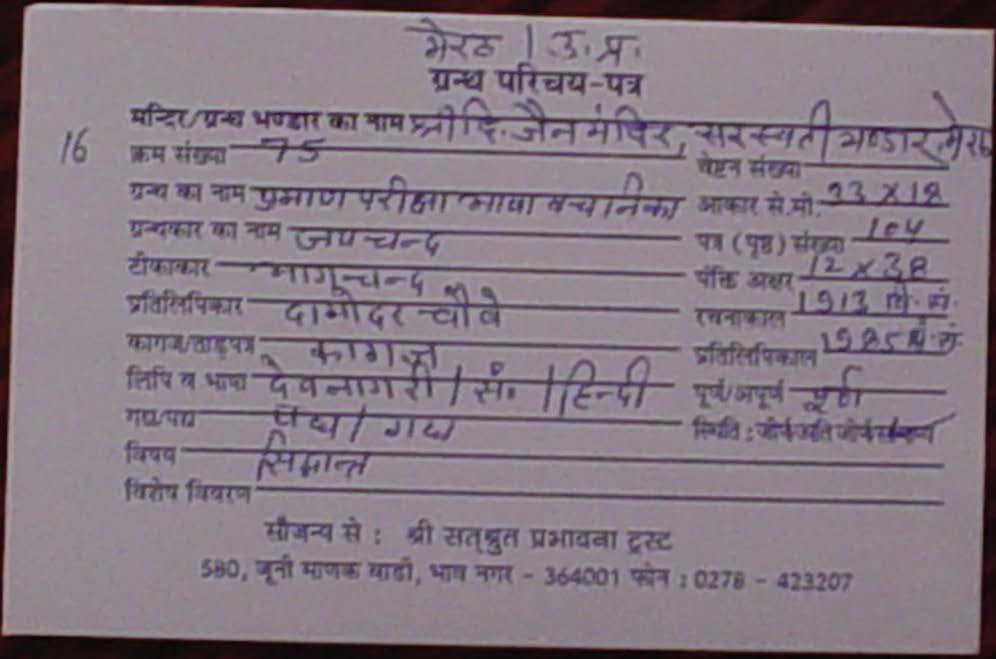 मेरठ / उ. प्र.
ग्रन्थ परिचय-पत्र
मन्दिर/ग्रन्थ भण्डार का नाम श्री दि. जैन मंदिर, सरस्वती भण्डार, मेरठ
16 क्रम संख्या 75 वेष्टन संख्या
ग्रन्थ का नाम प्रमाण परीक्षा भाषा वचनिका आकार से.मी. 33 X 18
ग्रन्थकार का नाम जयचन्द पत्र (पृष्ठ) संख्या 104
टीकाकार भागचन्द पंक्ति अक्षर 12 X 38
प्रतिलिपिकार दामोदर चौबे रचनाकाल 1913 वि. सं.
कागज/ताड़पत्र कागज प्रतिलिपिकाल 1985 वि. सं.
लिपि व भाषा देवनागरी / सं. / हिन्दी पूर्ण/अपूर्ण पूर्ण
गद्य/पद्य पद्य / गद्य स्थिति : जीर्ण/अति जीर्ण/सामान्य
विषय सिद्धान्त
विशेष विवरण
सौजन्य से : श्री सत्श्रुत प्रभावना ट्रस्ट
580, जूनी माणक वाडी, भाव नगर - 364001 फोन : 0278 - 423207